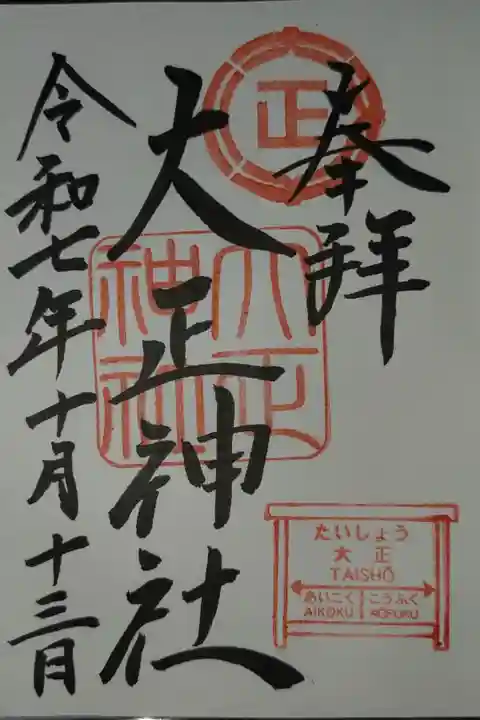 奉拝
正
大正神社
大正
神社
令和七年十月十三日
たいしょう
大正
TAISHŌ
あいこく こうふく
AIKOKU KOFUKU